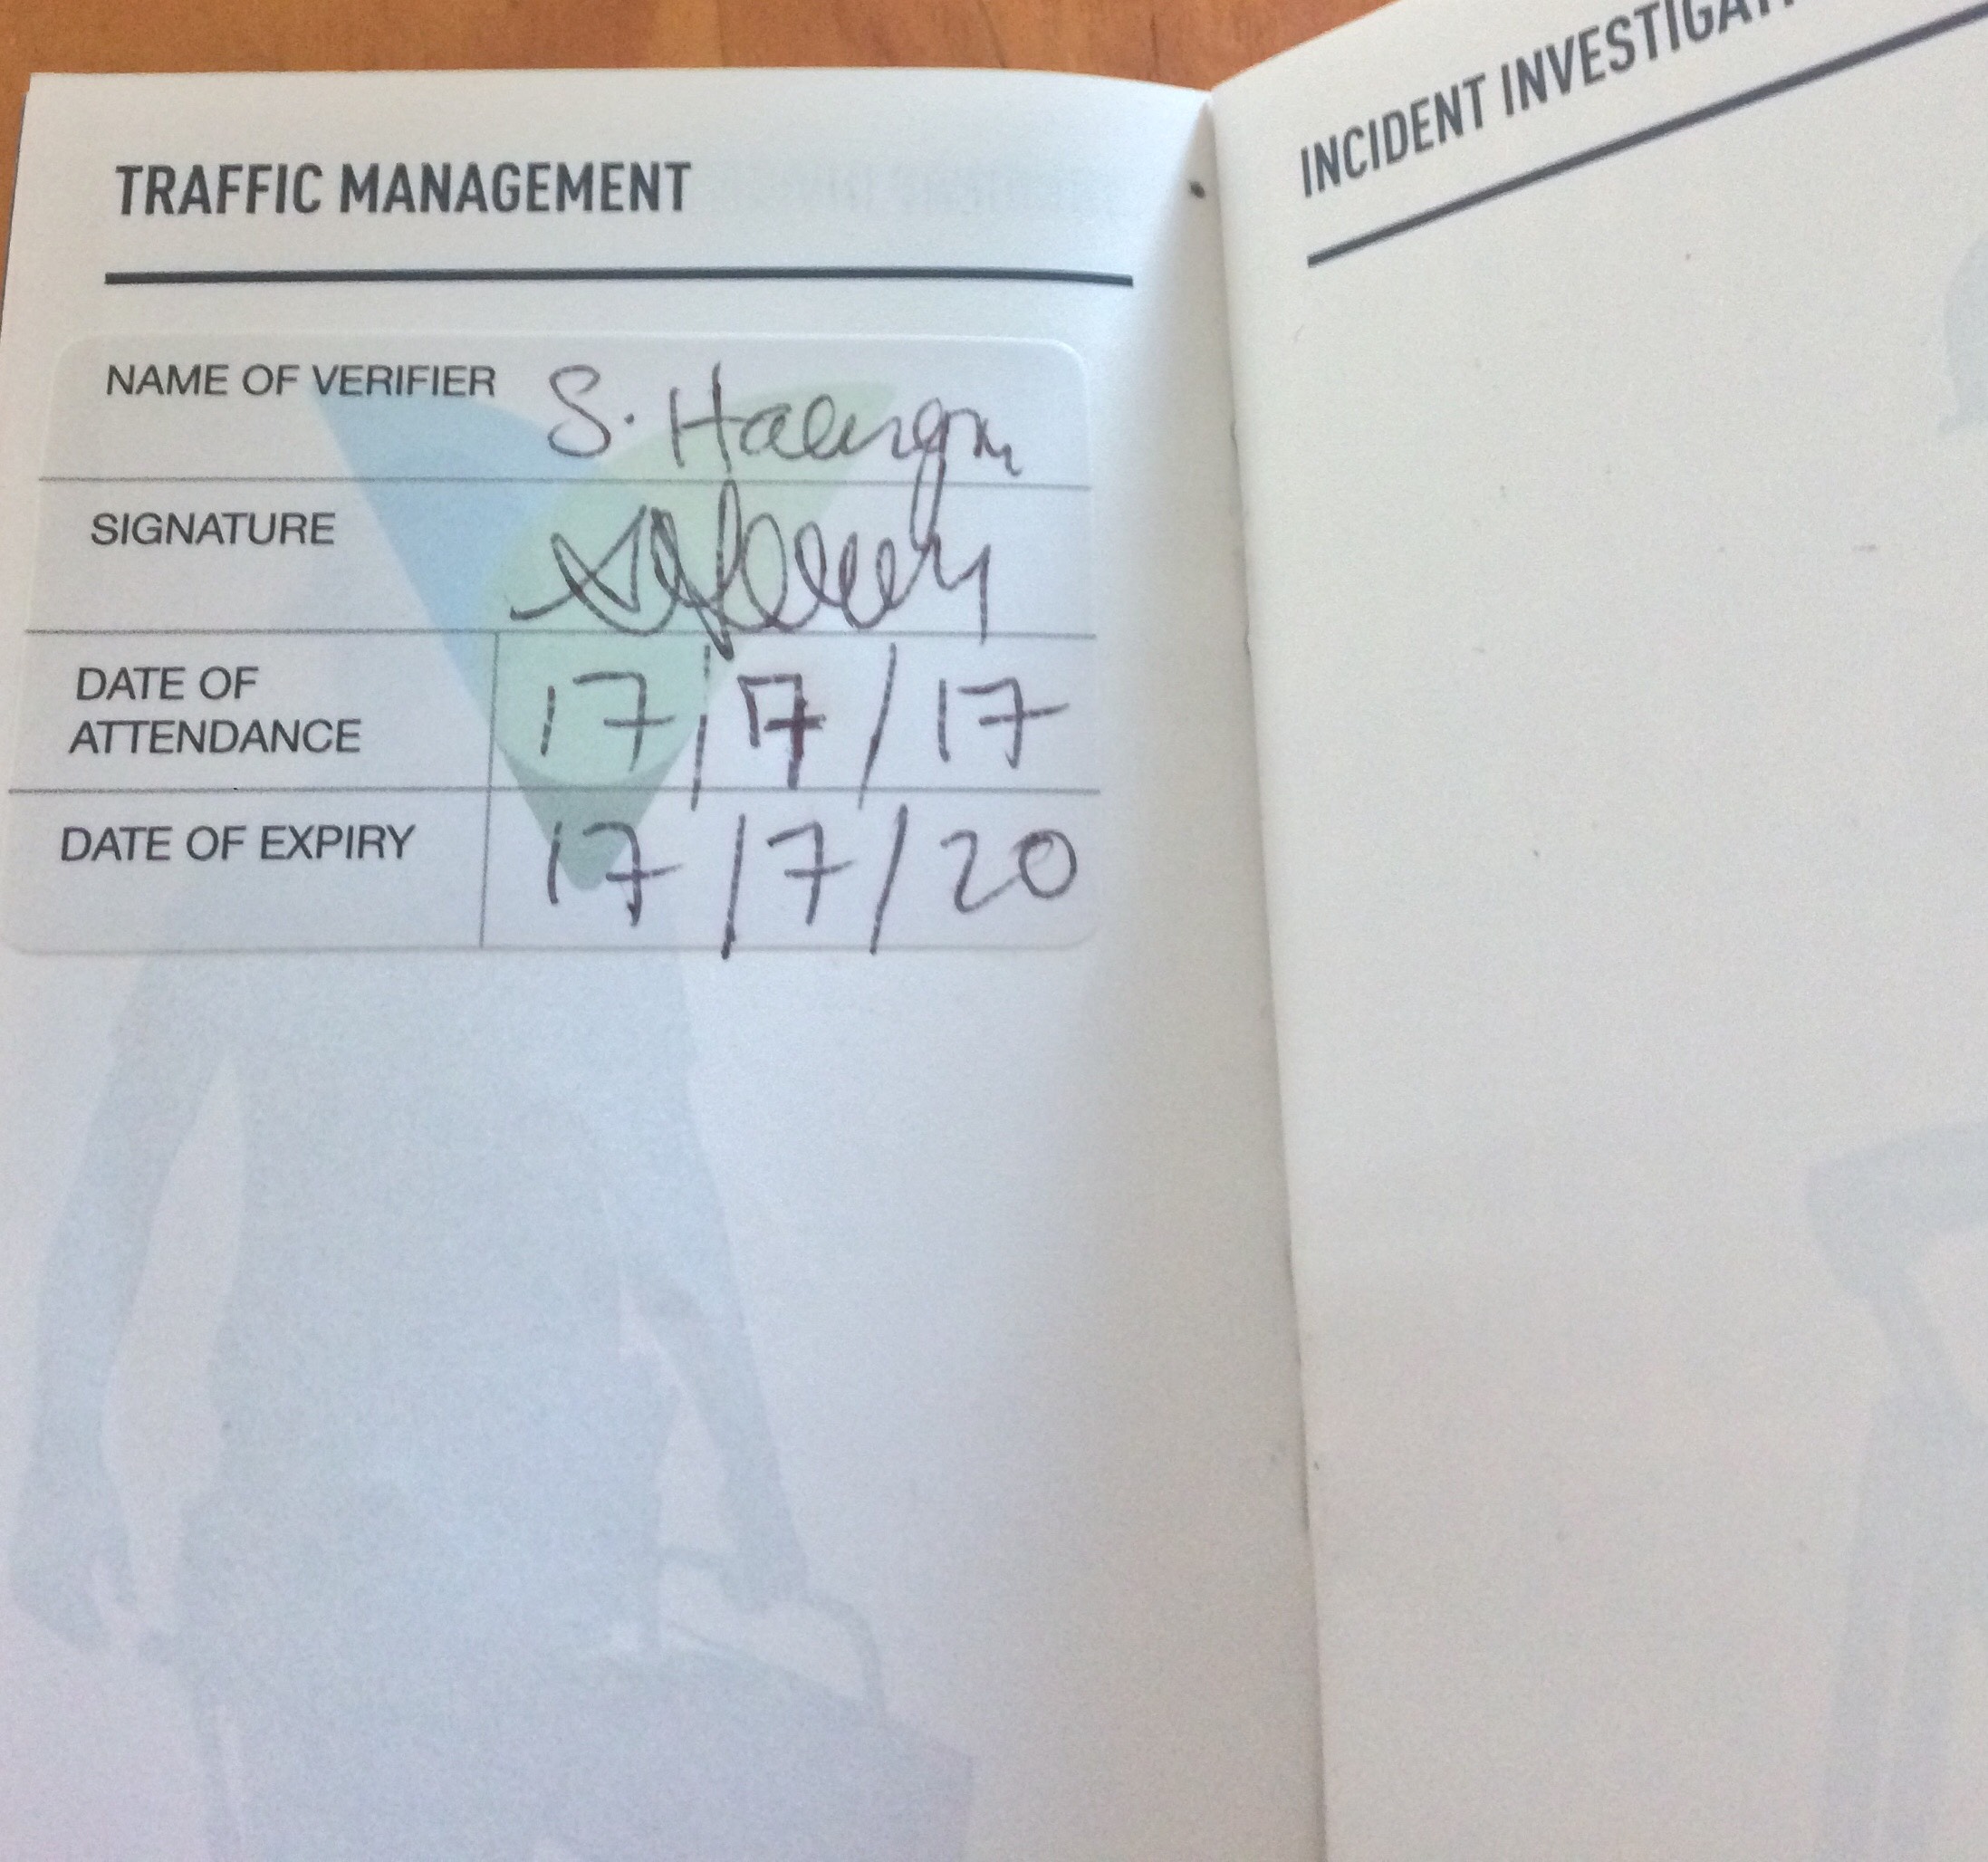 TRAFFIC MANAGEMENT
NAME OF VERIFIER S.
SIGNATURE
DATE OF
ATTENDANCE 17/7/17
DATE OF EXPIRY 17/7/20
INCIDENT